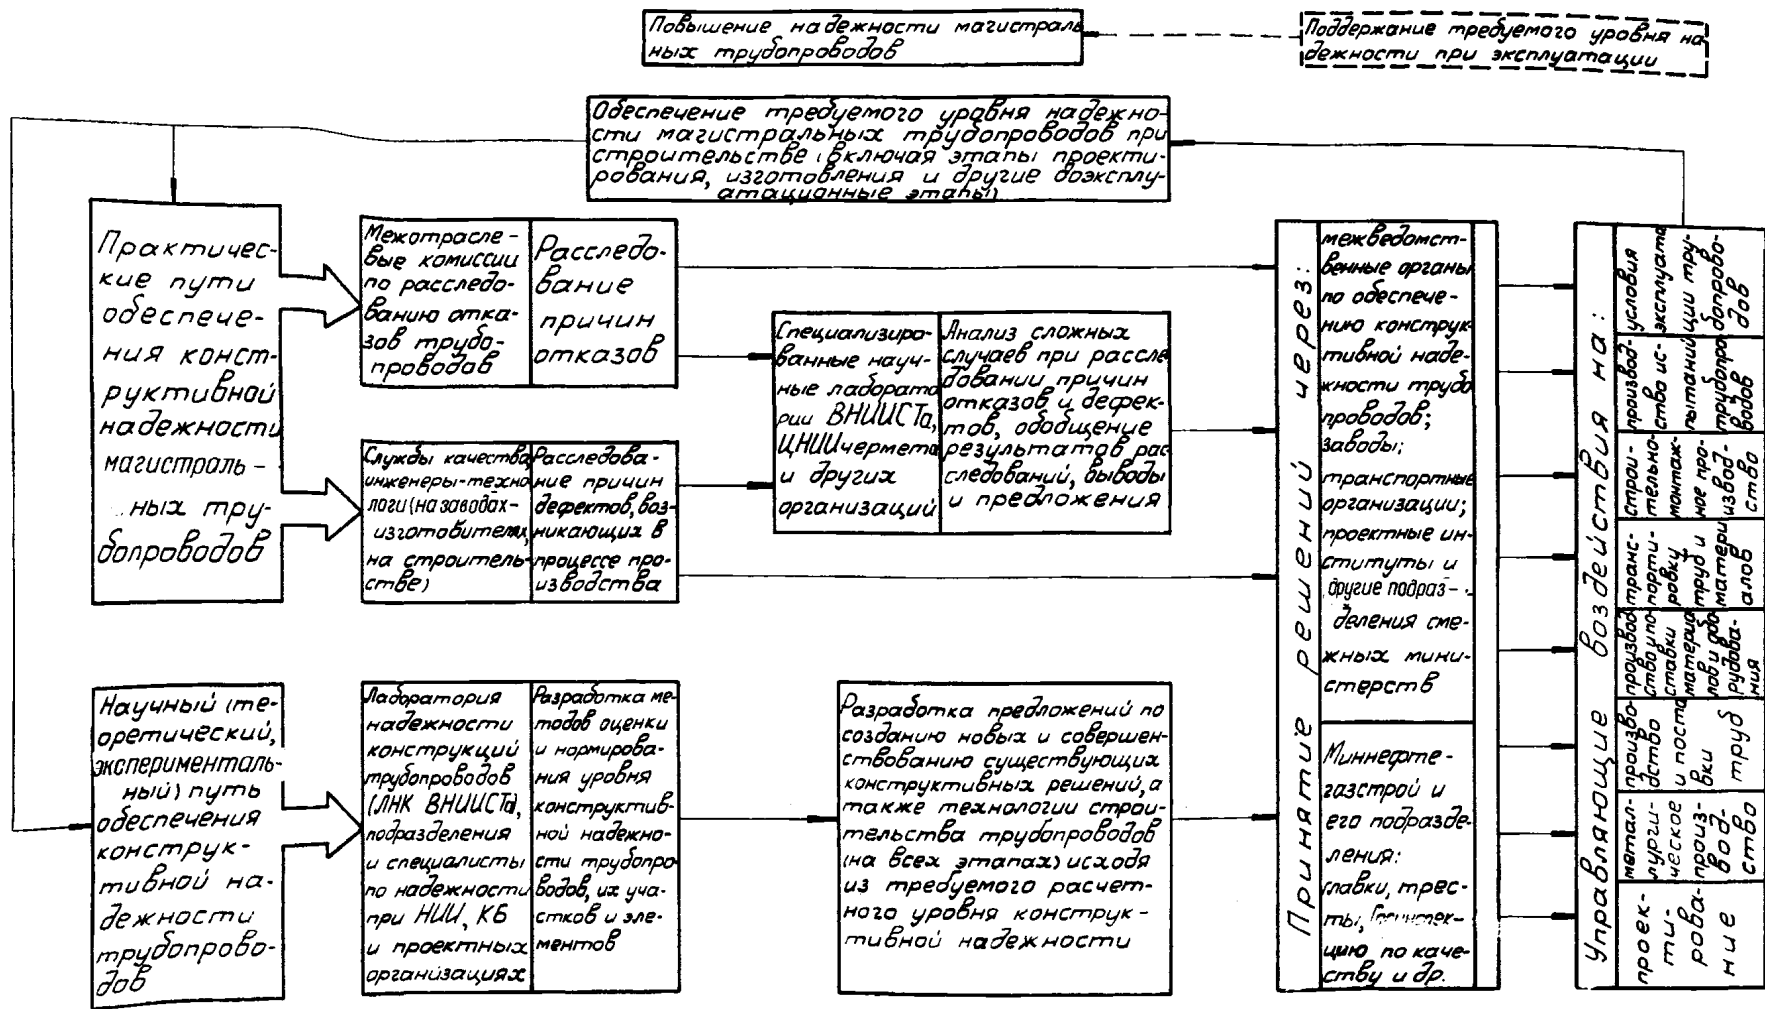 Повышение надежности магистраль
ных трубопроводов
Поддержание требуемого уровня на
дежности при эксплуатации
Обеспечение требуемого уровня надежно-
сти магистральных трубопроводов при
строительстве (включая этапы проекти-
рования, изготовления и другие доэксплу-
атационные этапы)
Практичес-
кие пути
обеспече-
ния конст-
руктивной
надежности
магистраль-
ных тру-
бопроводов
Межотрасле-
вые комиссии
по расследо-
ванию отка-
зов трубо-
проводов
Расследо-
вание
причин
отказов
Службы качества,
инженеры-техно
логи (на заводах-
изготовителях,
на строитель-
стве)
Расследова-
ние причин
дефектов, воз-
никающих в
процессе про-
изводства
Специализиро-
ванные науч-
ные лаборато
рии ВНИИСТа,
ЦНИИчермета
и других
организаций
Анализ сложных
случаев при рассле
довании причин
отказов и дефек-
тов, обобщение
результатов рас
следований, выводы
и предложения
Научный (те-
оретический,
эксперименталь-
ный) путь
обеспечения
конструк-
тивной на-
дежности
трубопрово-
дов
Лаборатория
надежности
конструкций
трубопроводов
(ЛНК ВНИИСТа),
подразделения
и специалисты
по надежности
при НИИ, КБ
и проектных
организациях
Разработка ме-
тодов оценки
и нормирова-
ния уровня
конструктив-
ной надежно-
сти трубопро
водов, их уча-
стков и эле-
ментов
Разработка предложений по
созданию новых и совершен-
ствованию существующих
конструктивных решений, а
также технологии строи-
тельства трубопроводов
(на всех этапах) исходя
из требуемого расчет-
ного уровня конструк-
тивной надежности
Принятие решений через:
межведомст-
венные органы
по обеспече-
нию конструк-
тивной наде-
жности трубо
проводов;
заводы;
транспортные
организации;
проектные ин-
ституты и
другие подраз-
деления сме-
жных мини-
стерств
Миннефте-
газстрой и
его подразде-
ления:
главки, трес-
ты, Госинспек-
цию по каче-
ству и др.
Управляющие воздействия на:
условия
эксплуата
ции тру-
бопрово-
дов
производ-
ство ис-
пытаний
трубопро
водов
строи-
тельно-
монтаж-
ное про-
извод-
ство
транс-
порти-
ровку
труб и
матери
алов
производ
ство и по
ставки
материа
лов и обо
рудова-
ния
произво-
дство
и поста
вки
труб
метал-
лурги-
ческое
произ-
вод-
ство
проек-
ти-
рова-
ние